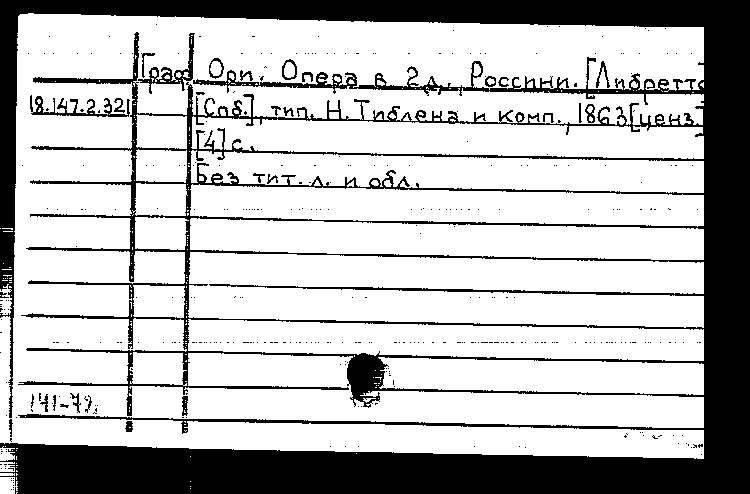 Граф Ори. Опера в 2 д., Россини. [Либретто
18.147.2.321 [Спб.], тип. Н. Тиблена и комп., 1863 [ценз.]
[4] с.
Без тит. л. и обл.
141-79